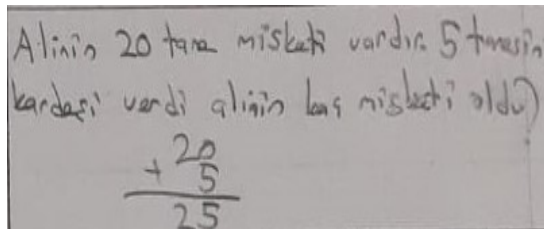 Alinin 20 tane misketi vardır. 5 tanesin
kardeşi verdi alinin kaç misketi oldu?
20
+ 5
25